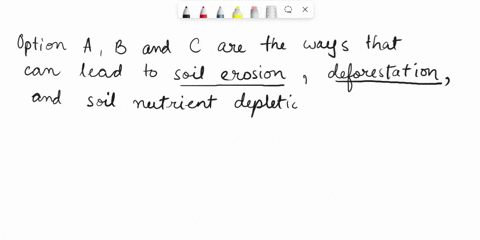 Option A, B and C are the ways that
can lead to soil erosion, deforestation,
and soil nutrient depletic